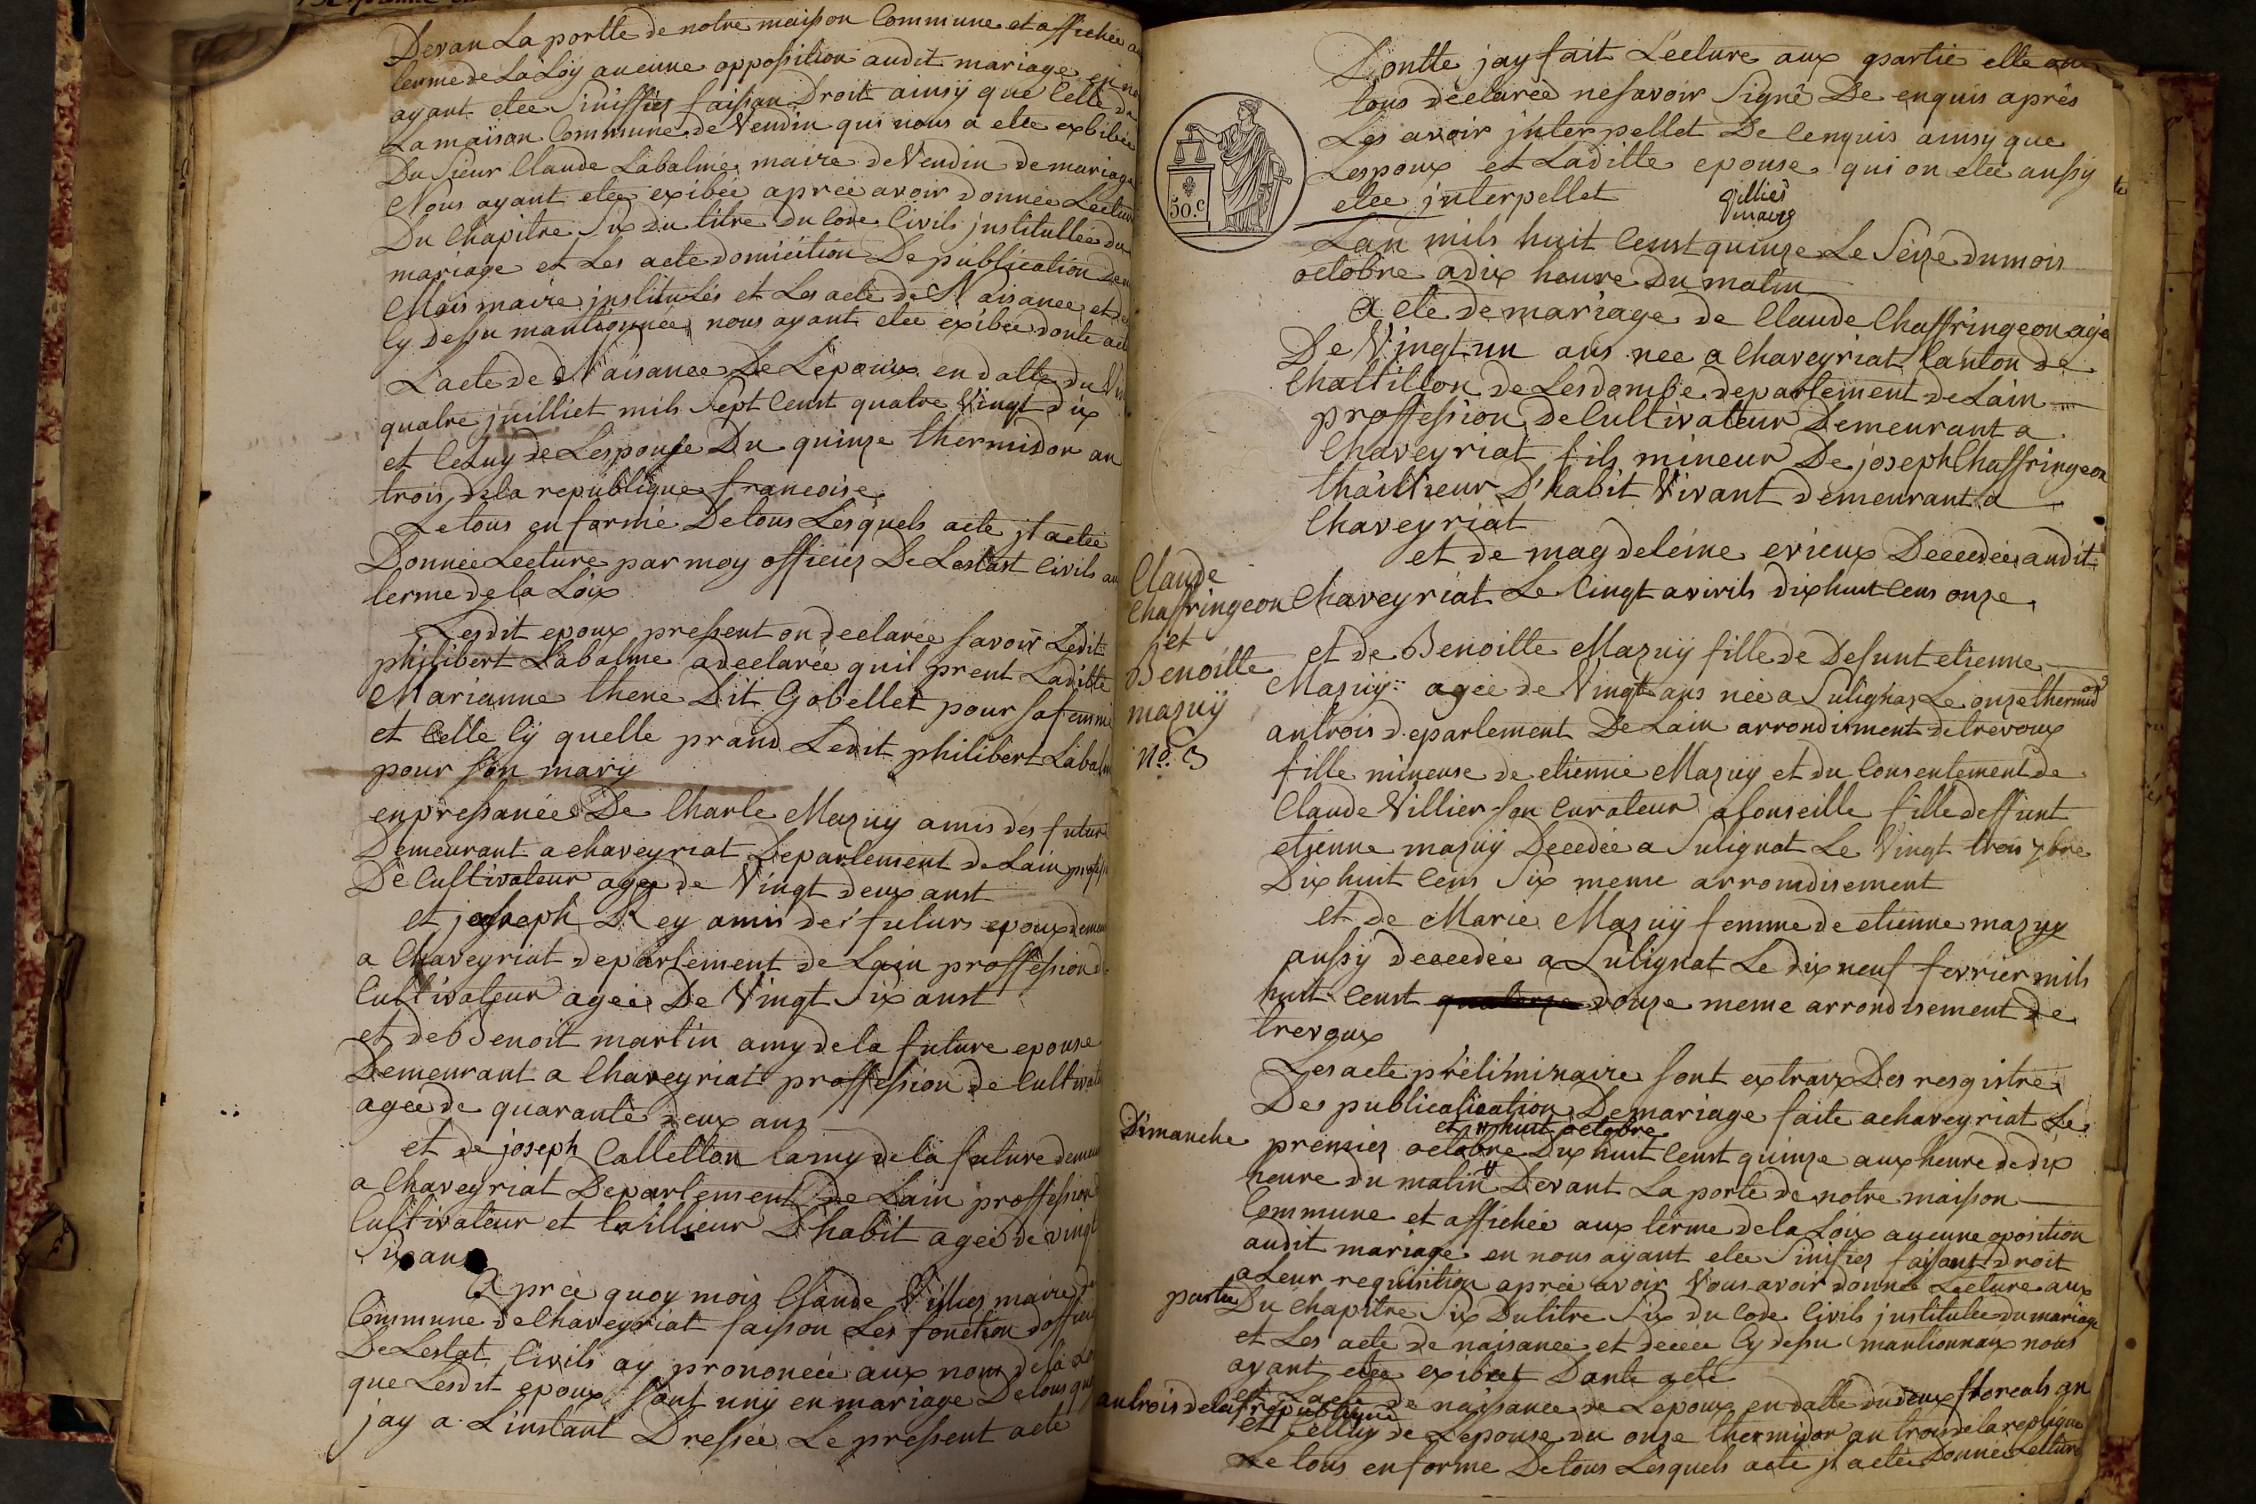 Devan La portte de notre maison Commune et affichée au
terme de La Loÿ aucune opposition audit mariage en ne
ayant etee Sinifiéz faisan Droit ainsÿ que Celle de
La maison Commune de Vendin qui nous a etee exbibée
Du Sieur Claude Labalme maire de Vendin de mariage
Nous ayant etee exibée aprée avoir donnée Lecture
Du Chapitre Six du titre du Code Civils jnstitullée du
mariage et Les acte domicition De publication de
Mois maire jnstitulés et Les acte de Naisance et de
Cy Dessu mantionnée nous ayant etee exibée donte acte
L'acte de Naisance De L'epoux en datte du Vingt
quatre juilliet mils Sept Censt quatre Vingt dix
et Celuy de Lespouse Du quinze thermidor an
trois dela republique francoise
Le tous en farme De tous Lesquels acte jl a etée
Donnée Lecture par moy officiez De Lestast Civils au
terme de la Loix
Lesdit epoux pressent on declarée savoir Ledit
philibert Labalme a declarée quil prent Laditte
Marianne thene Dit Gobellet pour sa femme
et Celle Cÿ quelle prand Ledit philibert Labalme
pour son marÿ
en pressanée De Charle Mazuÿ amis des futur
Demeurant a chaveyriat Departement de Lain proffession
De Cultivateur agez de Vingt deux anst
et joseph Rey amis des futurs epoux demeurant
a Chaveyriat departement de Lain proffession de
Cultivateur agée De Vingt Six anst
et de Benoit martin amy de la future epouse
Demeurant a Chaveyriat proffession de Cultivateur
agée de quarante deux ans
et de joseph Calletton lamy de la future demeurant
a Chaveyriat Departement de Lain proffession
Cultivateur et taillieur D'habit agée de vingt
Six ans
Aprée quoy mois Claude Villiez maire de
Commune de Chaveyriat faison Les fonction d'officiez
De Lestat Civils ay prononcée aux nom de la Loy
que Lesdit epoux sont unÿ en mariage De tous quoy
jay a Linstant Dressée Le pressent acte
Dontte jay fait Lecture aux partie elle on
tous declarée ne savoir Signé De enquis aprés
Les avoir jnterpellet De Cenquis ainsy que
Lespoux et Laditte epouse qui on etee aussy
etee jnterpellet
Villiez
maire
50.c
Lan mils huit Censt quinze Le Seize du mois
octobre a dix heure Du matin
Acte de mariage de Claude Chaffringeon agé
De Vingt un ans nee a Chaveyriat Canton de
Chattillon de Lesdombe departement de Lain
proffession de Cultivateur Demeurant a
Chaveyriat fils mineur De joseph Chaffringeon
thaillieur D'habit Vivant demeurant a
Chaveyriat
et de magdeleine evieux Decedée audit
Chaveyriat Le Vingt avirils dix huit Cens onze
Claude
Chaffringeon
et
Benoitte
mazuÿ
No. 3
et de Benoitte Mazuÿ fille de Defunt etienne
Mazuÿ agée de Vingt ans née a Sulignaz Le onze thermidor
an trois departement De Lain arrondisment de trevoux
fille mineuse de etienne Mazuy et du Consentement de
Claude Villier son Curateur a Conseille fille deffunt
etienne mazuÿ Decedée a Sulignat Le Vingt trois 7bre
Dix huit Cens Six meme arromdisement
et de Marie Mazuÿ femme de etienne mazuy
aussy decedée a Sulignat Le dix neuf fevrier mils
huit Censt quatorze douze meme arrondisement de
trevoux
Les acte préliminaire sont extraix Des resgistre
Des publicalication De mariage faite a chaveyriat Le
Dimanche
premiez octobre Dix huit Censt quinze aux heure de dix
et huit octobre
heure du matin Devant La porte de notre maison
Commune et affichée aux terme de la Loix aucune oposition
audit mariage en nous aÿant etee Sinifiez faisant Droit
a Leur requisition aprée avoir Vous avoir donnée Lecture aux
partie
Du Chapitre Six Du titre Six du Code Civils jnstitulée du mariage
et Les acte de naisance et decee Cy dessu mantionnaux nous
ayant etee exibret Dante acte
et Lacte de naisance de Lepoux en datte du deux floreals an
an trois dela republique
et Celluy de Lepouse du onze thermidor an trois de la repblique
Le tous en forme De tous Lesquels acte jl a etée Donnée Lecture